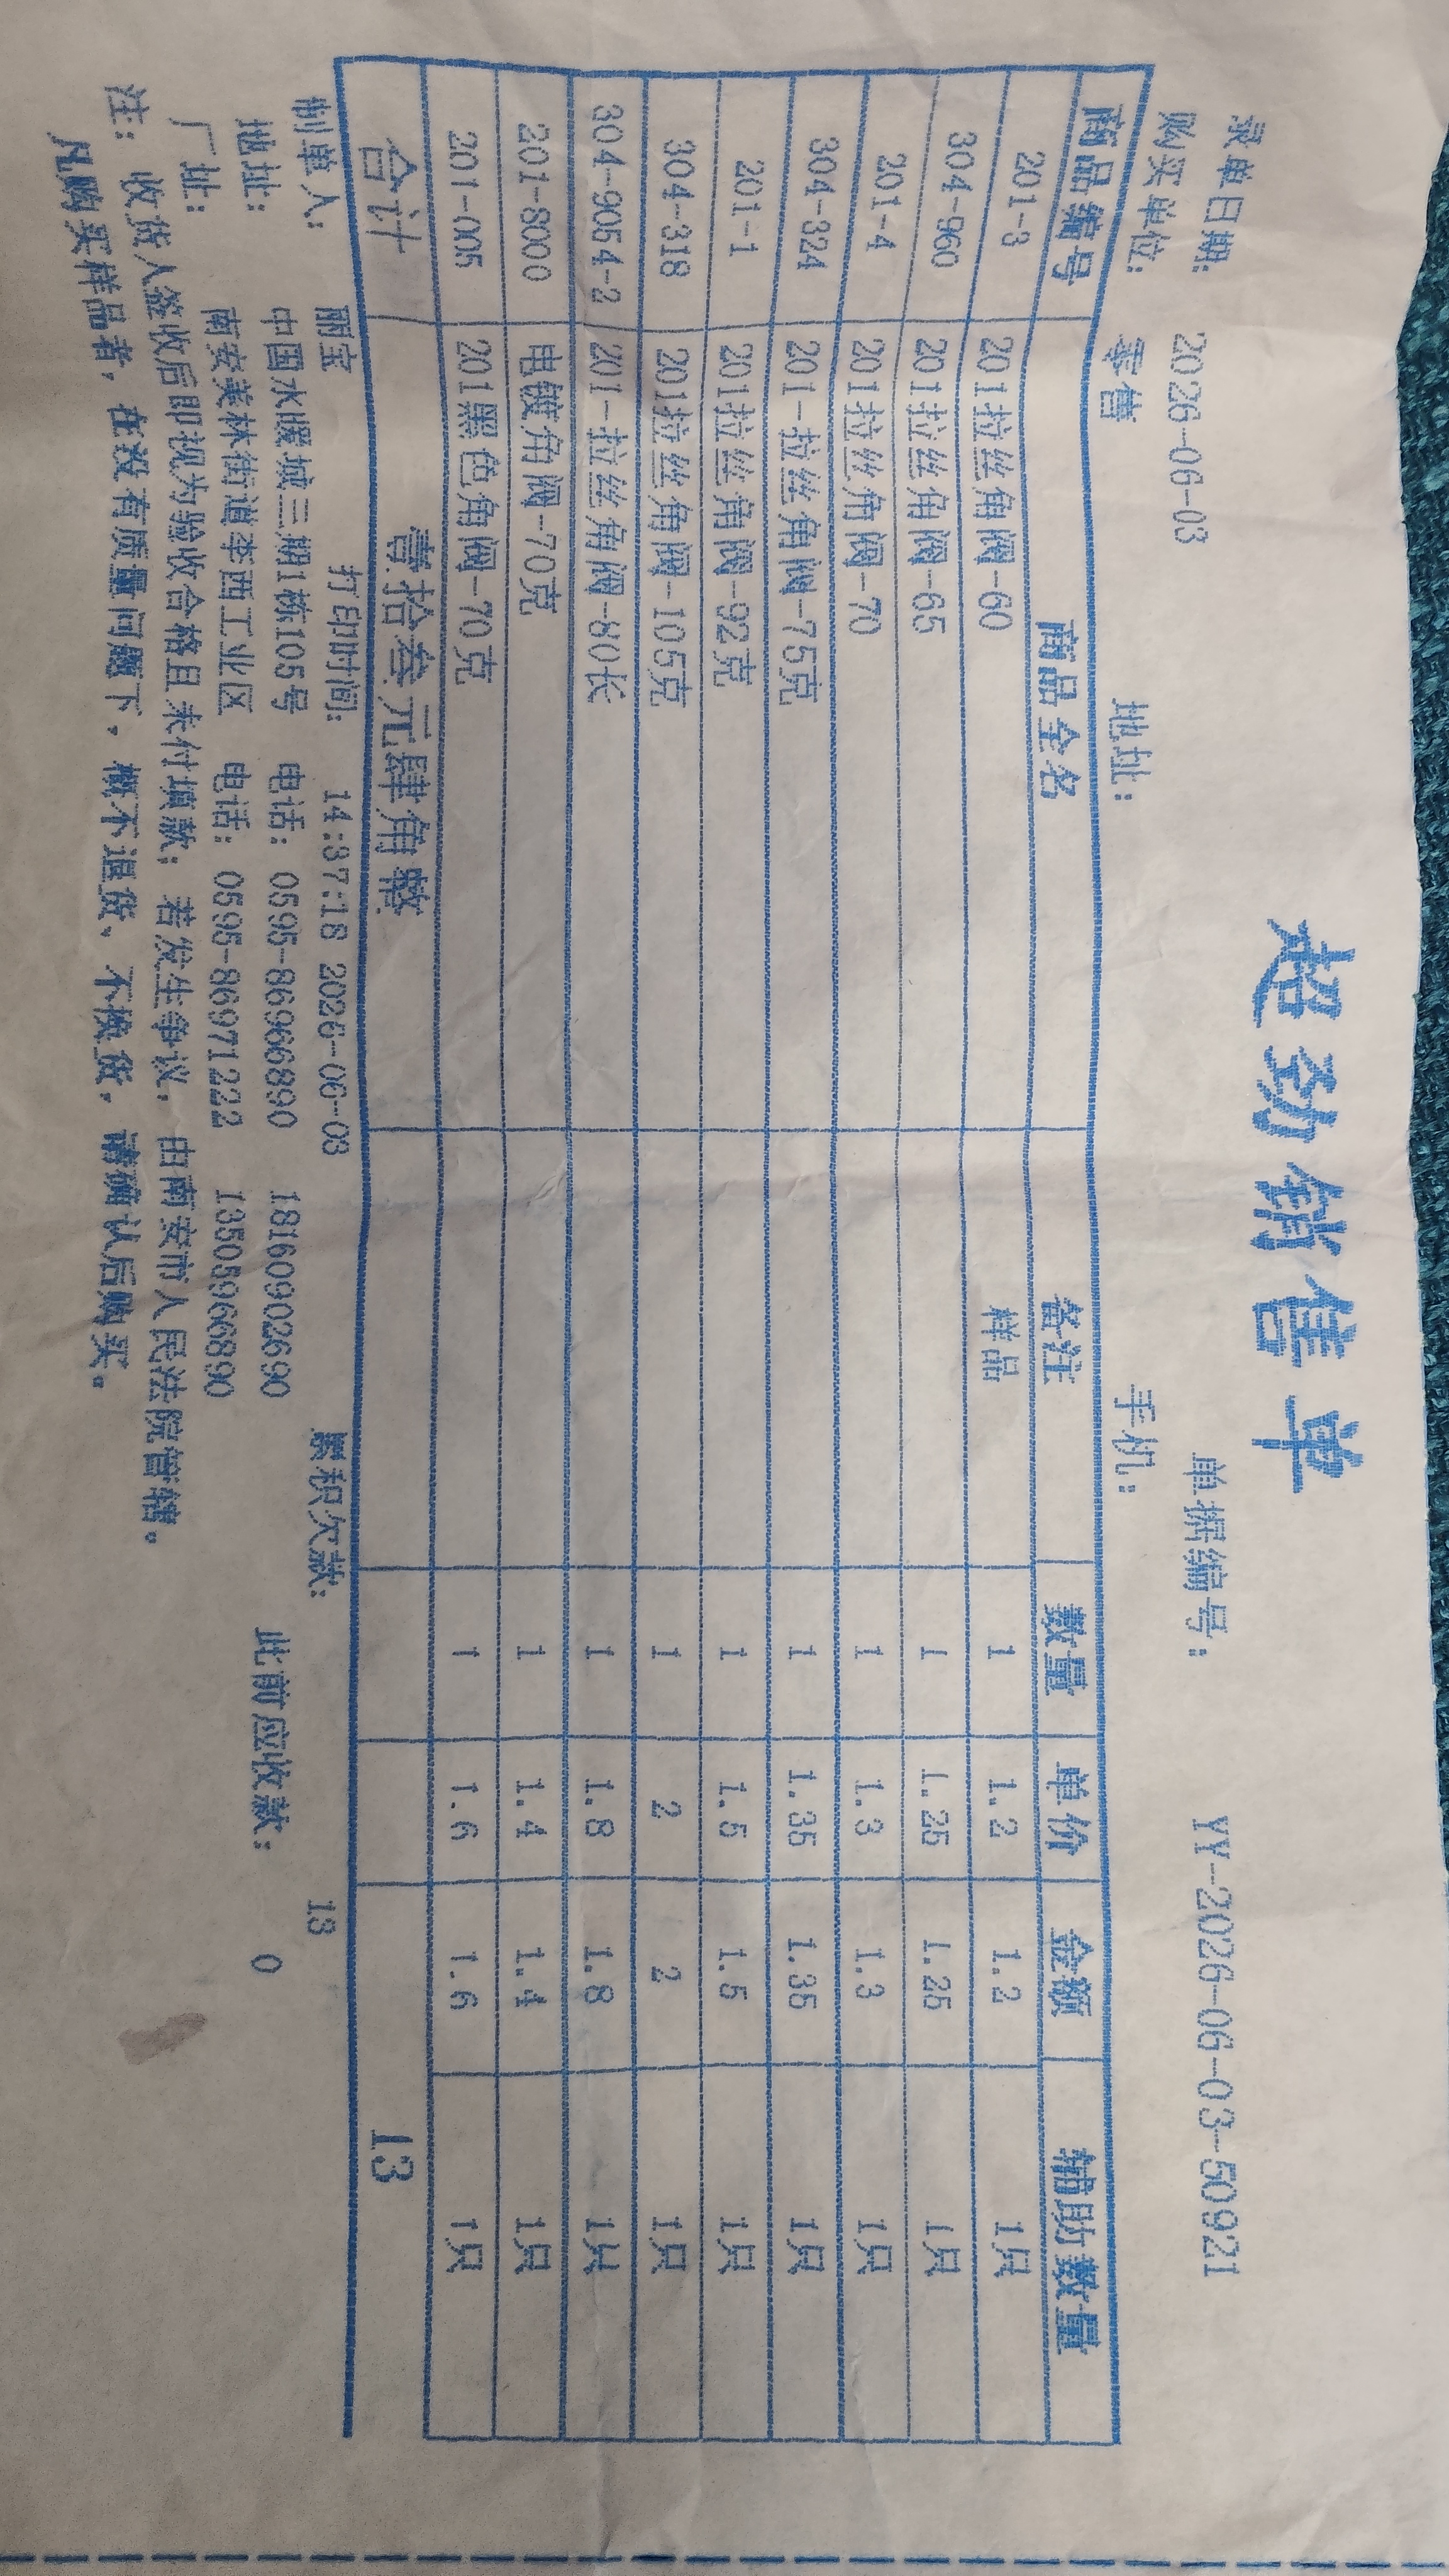 超劲销售单
录单日期: 2026-06-03 单据编号: YY-2026-06-03-50921
购买单位: 零售 地址: 手机:
商品编号 商品全名 备注 数量 单价 金额 辅助数量
201-3 201拉丝角阀-60 样品 1 1.2 1.2 1只
304-960 201拉丝角阀-65 1 1.25 1.25 1只
201-4 201拉丝角阀-70 1 1.3 1.3 1只
304-324 201-拉丝角阀-75克 1 1.35 1.35 1只
201-1 201拉丝角阀-92克 1 1.5 1.5 1只
304-318 201拉丝角阀-105克 1 2 2 1只
304-9054-2 201-拉丝角阀-80长 1 1.8 1.8 1只
201-8000 电镀角阀-70克 1 1.4 1.4 1只
201-005 201黑色角阀-70克 1 1.6 1.6 1只
合计 壹拾叁元肆角整 13
制单人: 丽宝 打印时间: 14:37:18 2026-06-03 累积欠款: 13
地址: 中国水暖城三期1栋105号 电话: 0595-86966890 18160902690 此前应收款: 0
厂址: 南安美林街道李西工业区 电话: 0595-86971222 13505966890
注: 收货人签收后即视为验收合格且未付填款; 若发生争议, 由南安市人民法院管辖。
凡购买样品者, 在没有质量问题下, 概不退货、不换货, 请确认后购买。